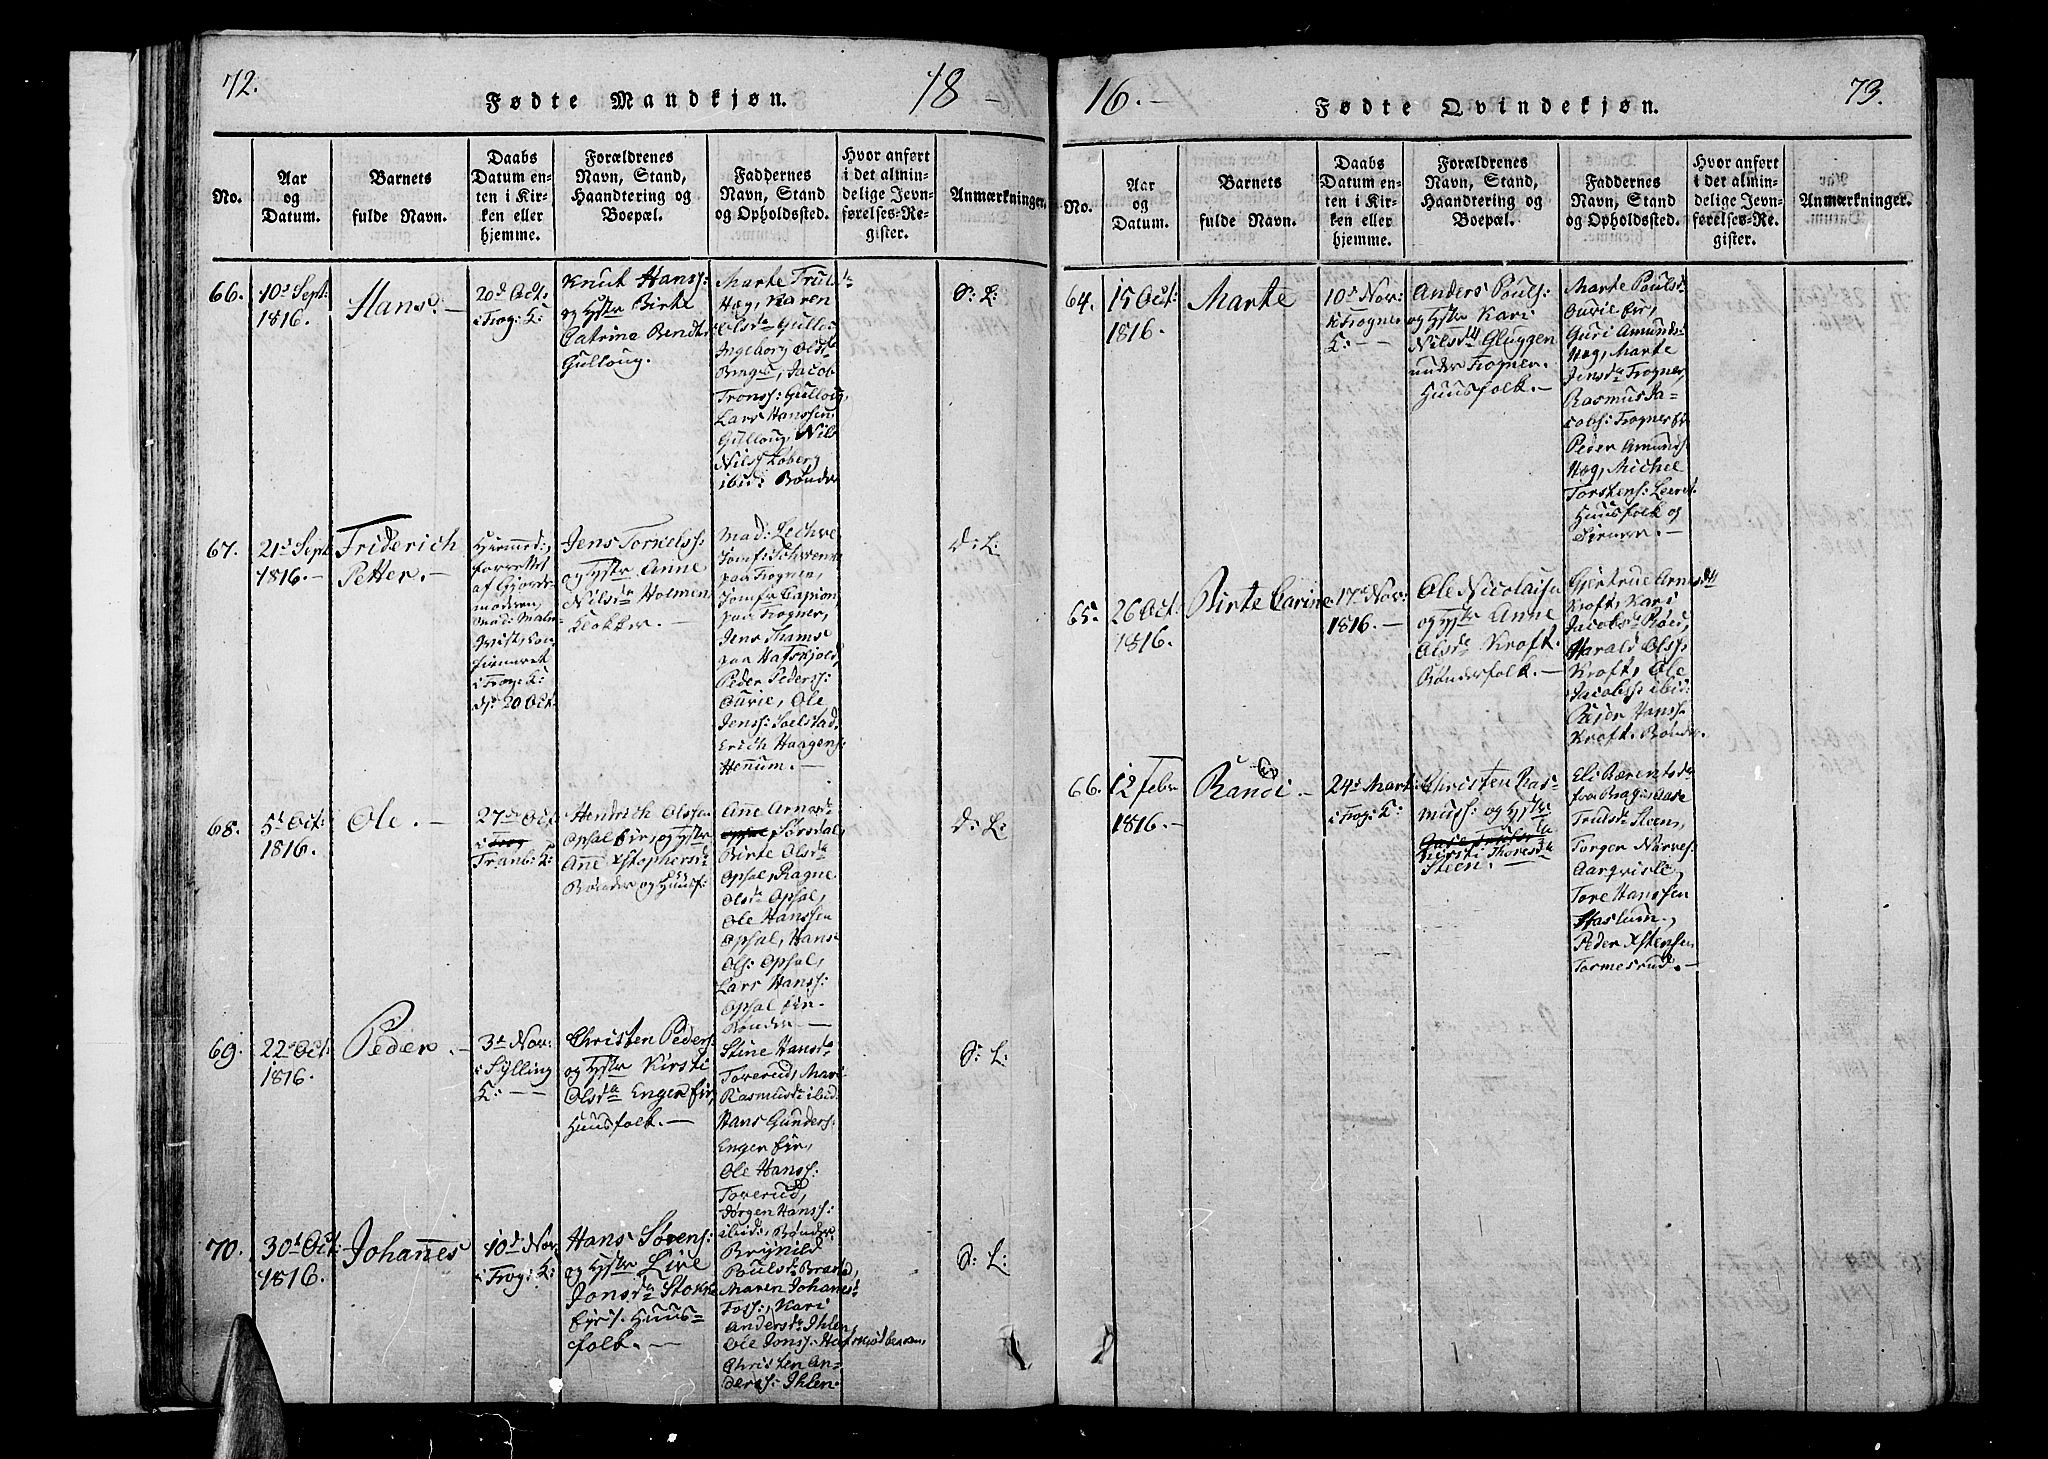 72.
Fødte Mandkjøn.
18 -
No.
Aar
og
Datum.
Barnets
fulde Navn.
Daabs
Datum en-
ten i Kir-
ken eller
hjemme.
Forældrenes
Navn, Stand,
Haandtering og
Boepæl.
Faddernes
Navn, Stand
og Opholdssted.
Hvor anført
i det almin-
delige Jevn-
førelses-Re-
gister.
Anmærkninger.
66.
10d Sept:
1816.
Hans. -
20d Oct:
i Trog: K:
Knut Hans:
og Hstr Birte
Catrine Bendts
Gulloug.
Marte Truls
Hæg, Karen
Olsda Gullo
Ingeborg Olds
Brages, Jacob
Trons: Gulloug,
Lars Hanssen
Gulloug, Nils
Nilss Løberg
ibid: Bønder
S: L:
67.
21d Sept
1816. -
Friderich
Petter. -
Hjemmed:
forrettet
af Gjorde-
moderen,
Mad: Malm-
qvist, con-
firmeret
i Trog: K:
d: 20 Oct:
Jens Torkelss:
og Hstr Anne
Nilsda Holmen
Klokker. -
Mad: Lechve
Jomf: Schwen
paa Trogner,
Jomfr Capion
paa Trogner,
Jens Thams
paa Hafskjold,
Peder Peders:
Ourie, Ole
Jenss: Solstad,
Erich Haagens:
Hennum. -
D: L:
68.
5d Oct:
1816.
Ole. -
27de Oct
i Trog
Tranb: K:
Hendrich Olssen
Opsal Eir, og Hstr
Anne Xstophersd
Bønder og Huusf:
Anne Arnesd
Opsal Sørsdal,
Birte Olsda
Opsal, Ragne
Olsda Opsal,
Ole Hanssen
Opsal, Hans
Ols: Opsal,
Lars Hanss:
Opsal Eir.
Bønder -
D: L:
69.
22d Oct:
1816.
Peder. -
3d Nov:
i Sylling
K: - -
Christen Peders
og Hstr Kirsti
Olsda Enger Eir,
Huusfolk. -
Stine Hansd
Toverud, Mari
Rasmusd: ibid:
Hans Gunders:
Enger Eir,
Ole Hanss:
Toverud,
Jørgen Hanss:
ibid:, Bønder
S: L:
70.
30d Oct:
1816.
Johannes
10d Nov:
i Trog: K:
Hans Sørens:
og Hstr Live
Jonsda Stokke
Eir:, Huus-
folk. -
Brynild
Pouls: Brand,
Maren Johannes
Foss:, Kari
Andersd: Ihlen,
Ole Jonss: Hafskiold
Christen An-
derss: Ihlen.
S: L:
16. -
Fødte Qvindekjøn.
73.
No.
Aar
og
Datum.
Barnets
fulde Navn.
Daabs
Datum en-
ten i Kir-
ken eller
hjemme.
Forældrenes
Navn, Stand,
Haandtering og
Boepæl.
Faddernes
Navn, Stand
og Opholdssted.
Hvor anført
i det almin-
delige Jevn-
førelses-Re-
gister.
Anmærkninger.
64.
15 Oct:
1816.
Marte
10d Nov:
i Trogner
K: - -
Anders Pouls:
og Hstr Kari
Nilsda Gluggen
under Trogner.
Huusfolk. -
Marte Poulsd
Ourie Eir,
Guri Amunds:
Hæg, Marte
Jensda Trogner,
Rasmus Ja-
cobs: Trogner Eir
Peder Amunds
Hæg, Michel
Torstens: Leer
Huusfolk og
65.
26 Oct:
1816.
Birte Carine.
17d Nov:
1816. -
Ole Nicolaisen
og Hstr Anne
Olsda Kroft.
Bønderfolk. -
Gjertrue Arnesd
Kroft, Kari
Jacobsd Røed,
Harald Olss:
Kroft, Ole
Jacobss: ibid:
Peder Hanss:
Kroft. Bønder.
66.
12 Febr
1816. -
Randi -
24d Mart:
i Trog: K:
Christen Ras-
muss: og Hstr
Aase Truls
Kirsti Thoresda
Steen. -
Eli Bærentsda
fra Brag: Aase
Trulsd Steen,
Torger Narves:
Aarqvisle,
Tore Hanssen
Haslum,
Peder Xstensen
Tormesrud. -